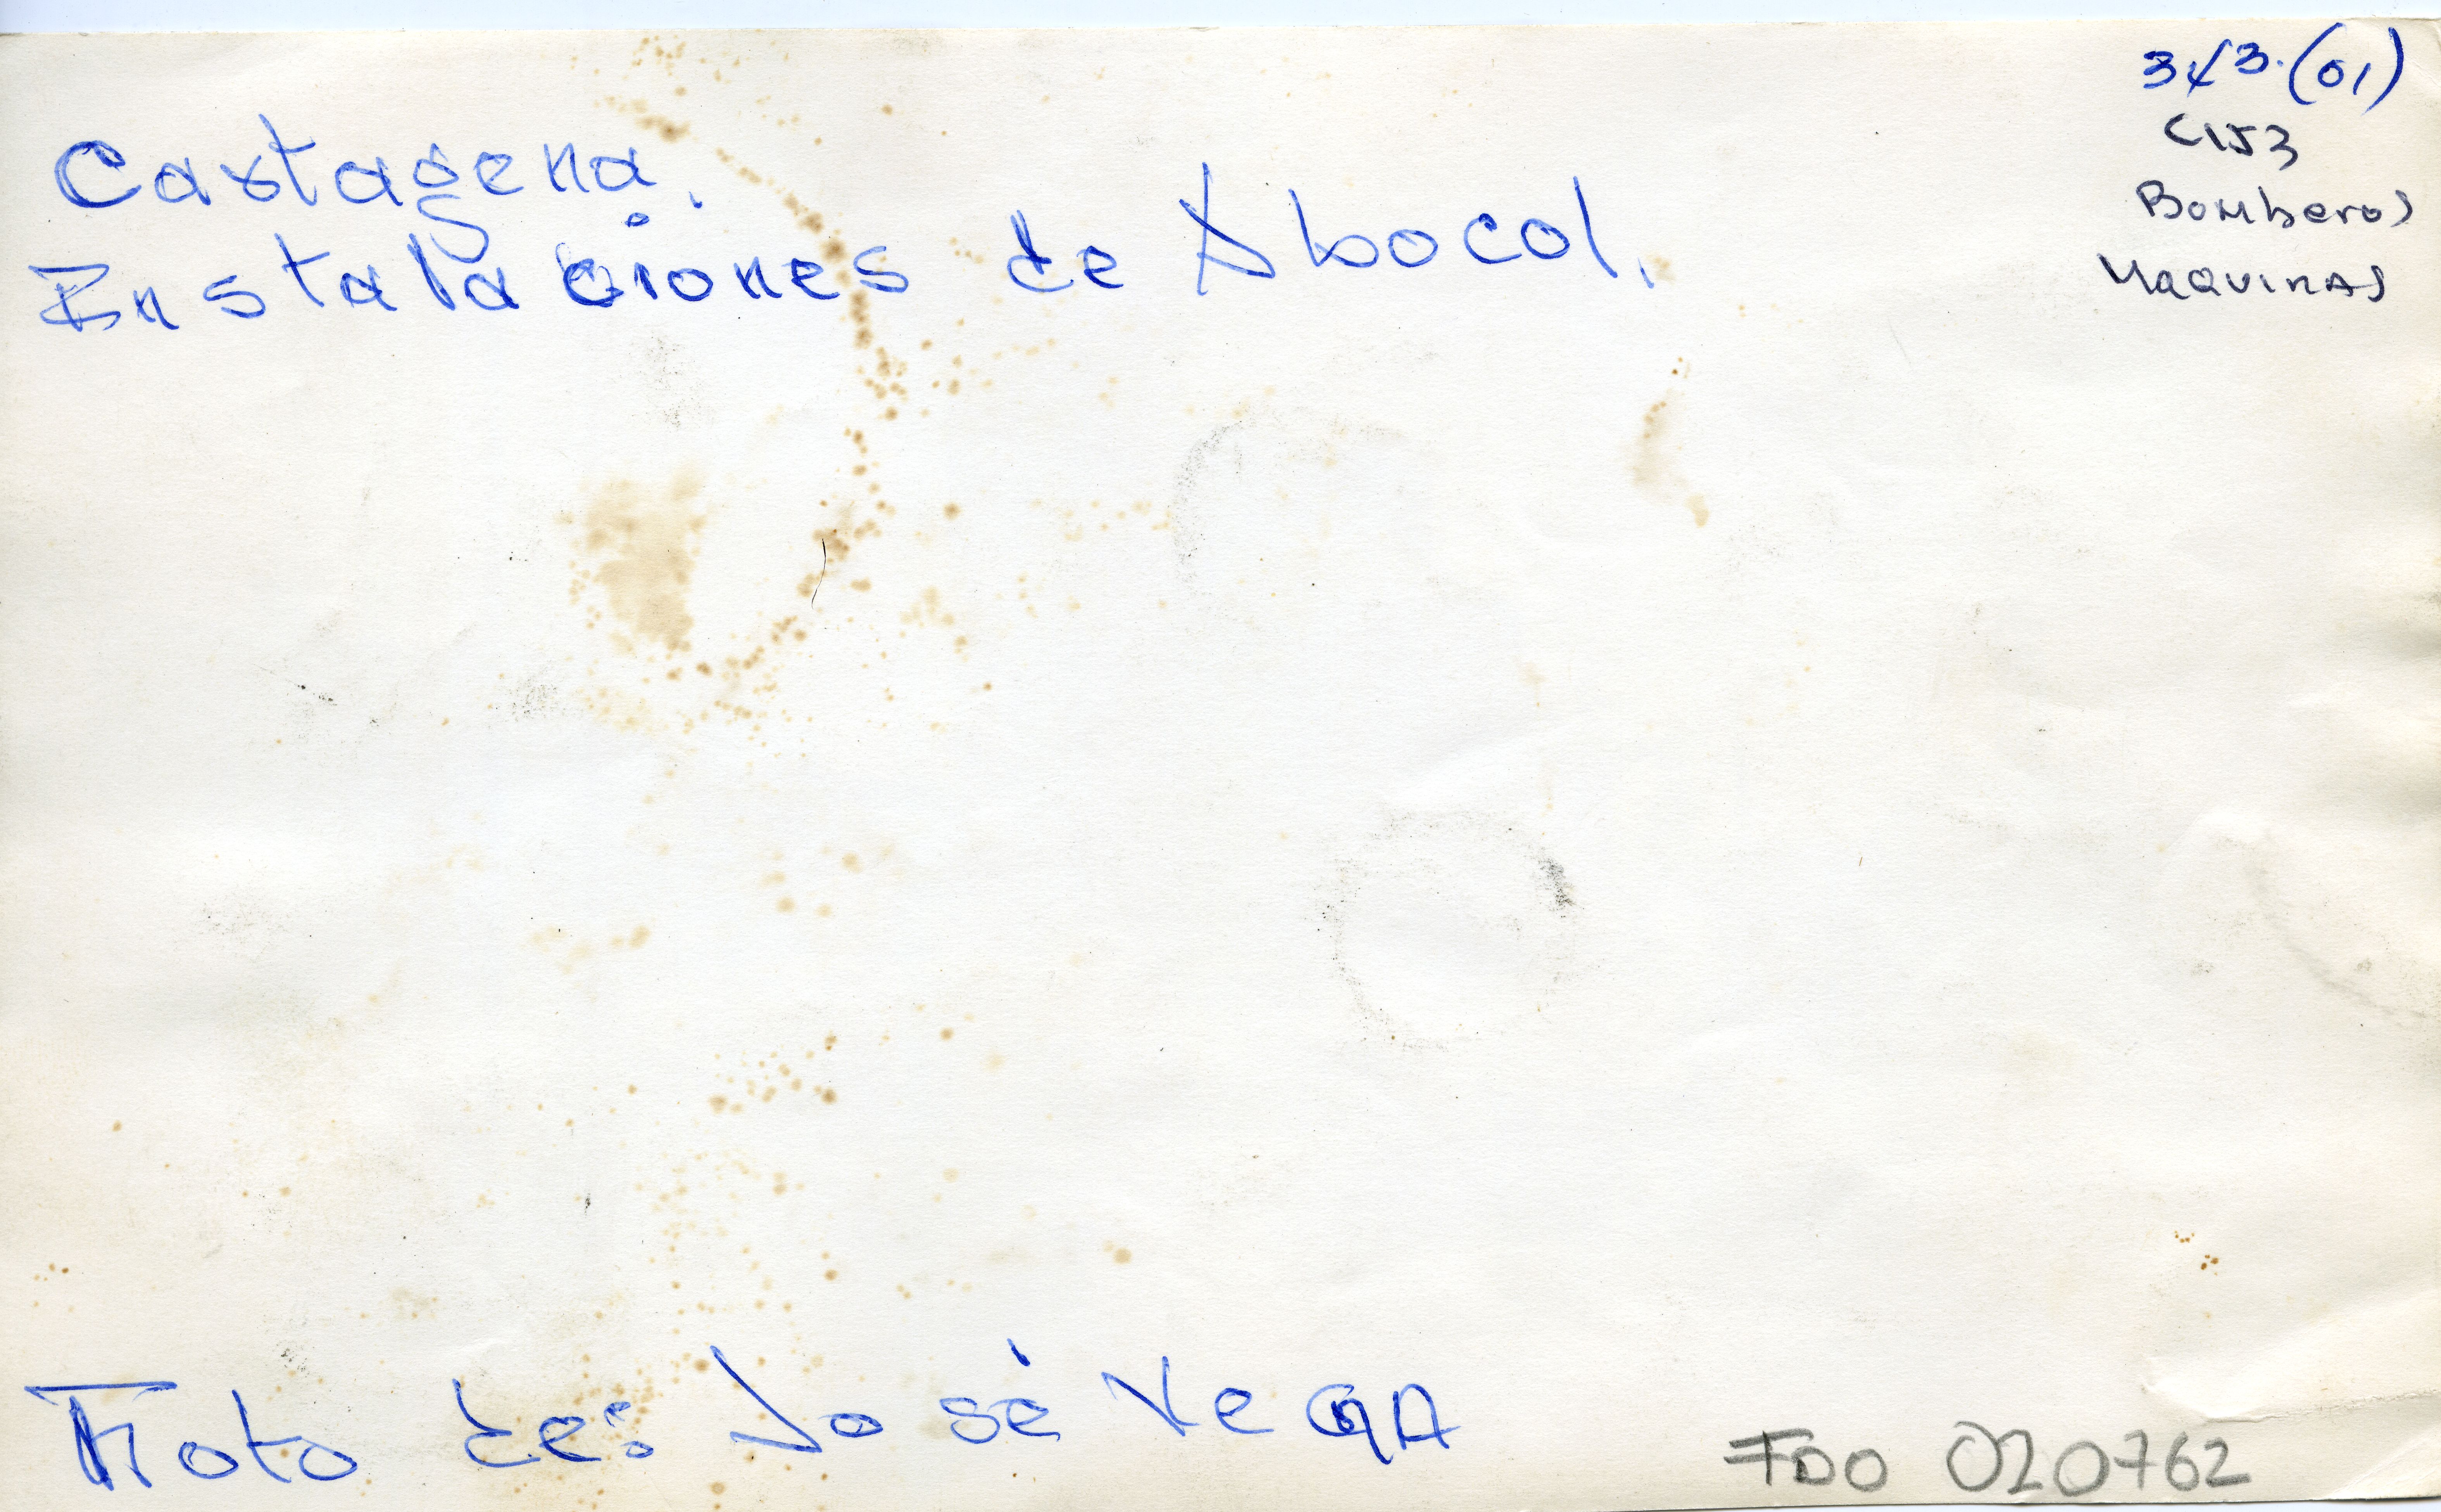 Cartagena.
Instalaciones de Abocol.
343.(01)
C153
Bomberos
Maquinas
Foto de: José Vega
FDO 020762